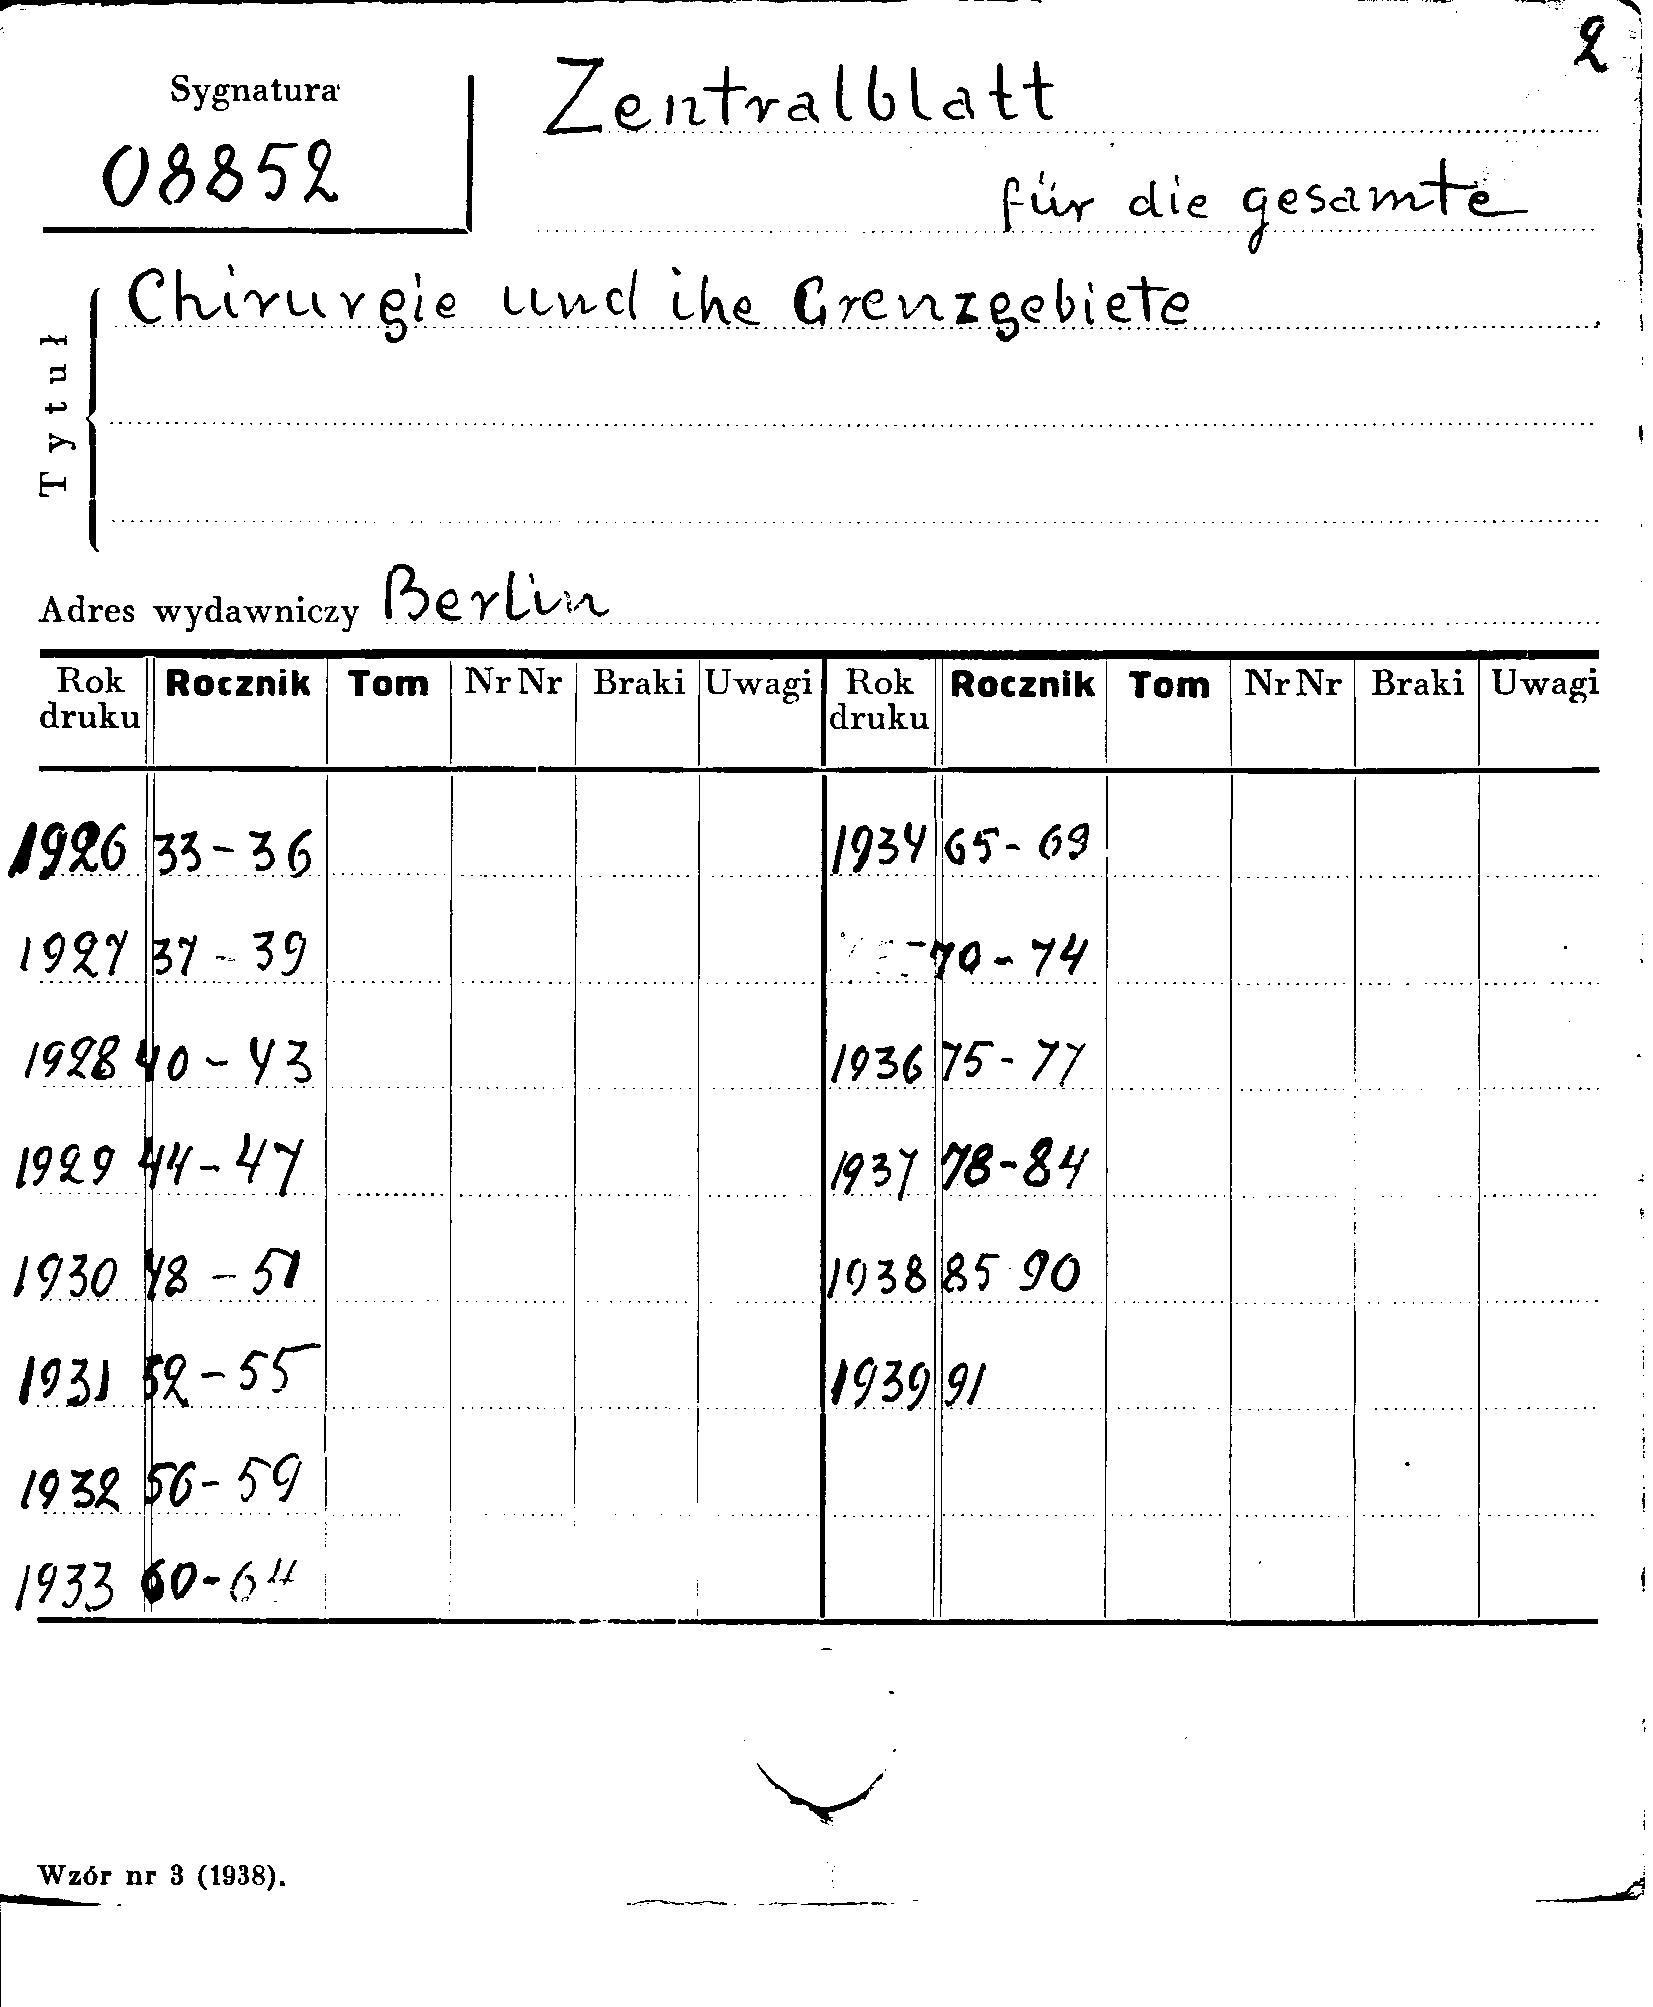 2
Sygnatura
08852
Zentralblatt
für die gesamte
Chirurgie und ihe Grenzgebiete
Tytuł
Adres wydawniczy Berlin
Rok druku Rocznik Tom Nr Nr Braki Uwagi Rok druku Rocznik Tom Nr Nr Braki Uwagi
1926 33-36 1934 65-69
1927 37-39 70-74
1928 40-43 1936 75-77
1929 44-47 1937 78-84
1930 48-51 1938 85 90
1931 52-55 1939 91
1932 56-59
1933 60-64
Wzór nr 3 (1938).